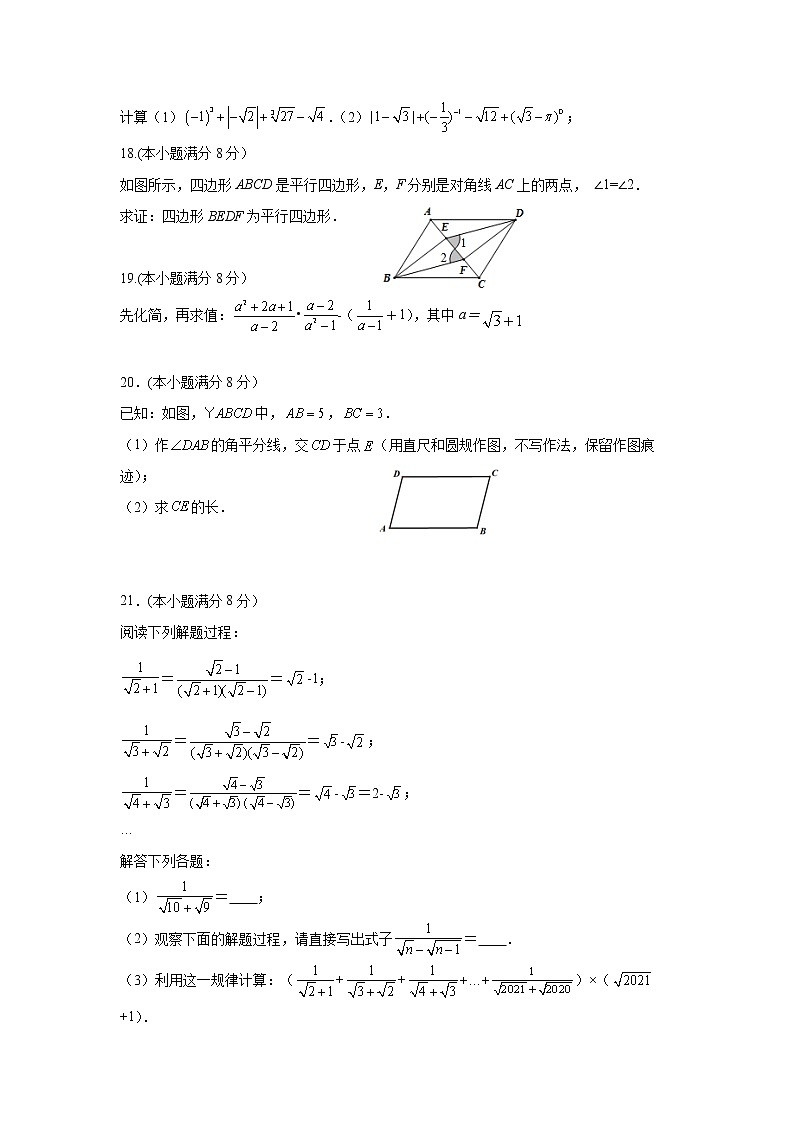 计算(1) (−1)² + |−√2| + ∛27 − √4 .(2) |1−√3|+(−1/3)⁻¹ − √12 + (√3−π)⁰ ;
18.(本小题满分 8 分)
如图所示,四边形 ABCD 是平行四边形,E,F 分别是对角线 AC 上的两点, ∠1=∠2.
求证:四边形 BEDF 为平行四边形.
A D
E
1
2
F
B C
19.(本小题满分 8 分)
先化简,再求值:(a²+2a+1)/(a−2) • (a−2)/(a²−1) -(1/(a−1) +1),其中 a=√3+1
20.(本小题满分 8 分)
已知:如图,YABCD 中,AB=5,BC=3.
(1)作∠DAB 的角平分线,交 CD 于点 E(用直尺和圆规作图,不写作法,保留作图痕
迹);
D C
(2)求 CE 的长.
A B
21.(本小题满分 8 分)
阅读下列解题过程:
1/(√2+1)=(√2−1)/((√2+1)(√2−1))=√2 -1;
1/(√3+√2)=(√3−√2)/((√3+√2)(√3−√2))=√3 -√2 ;
1/(√4+√3)=(√4−√3)/((√4+√3)(√4−√3))=√4 -√3=2-√3;
…
解答下列各题:
(1)1/(√10+√9)=____;
(2)观察下面的解题过程,请直接写出式子 1/(√n−√n−1)=____.
(3)利用这一规律计算:(1/(√2+1)+1/(√3+√2)+1/(√4+√3)+…+1/(√2021+√2020))×(√2021
+1).